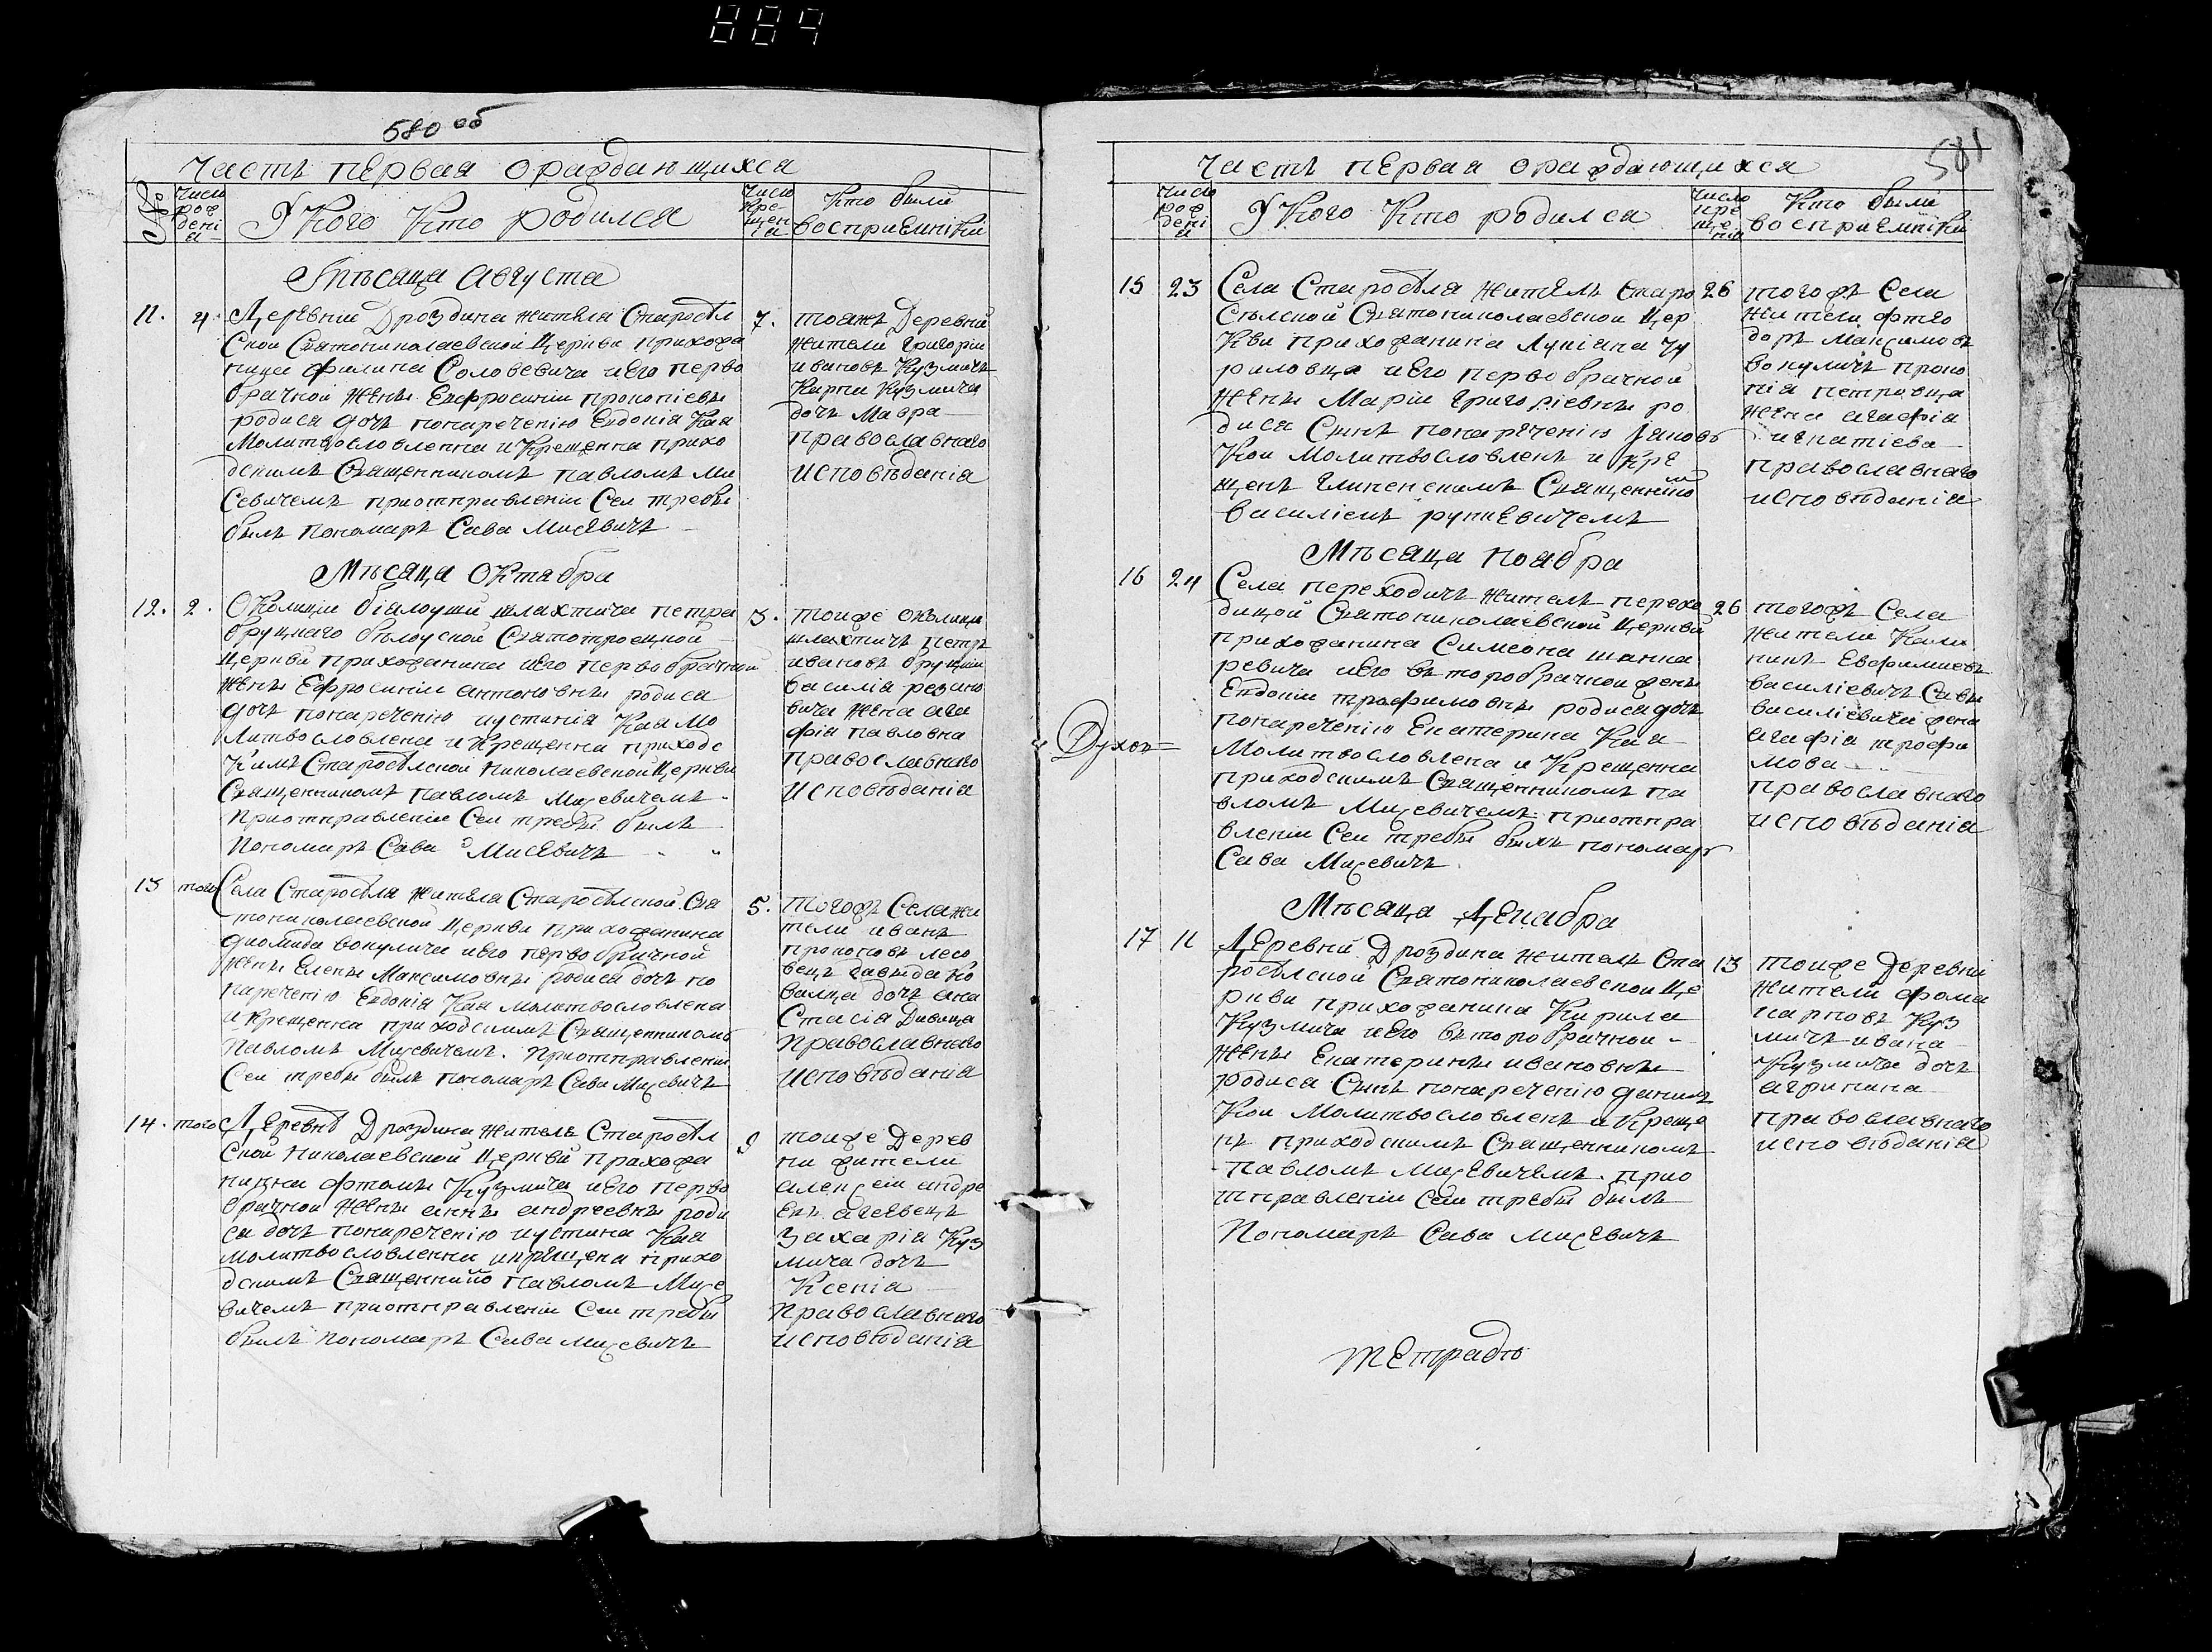 889
580 об
Часть первая ораждающихся
№
Число рождениа
У Кого Кто родился
Число Крещениа
Кто были восприемники
Мѣсаца Августа
11. 4. Деревни Дроздина жителя Старосѣл
ской Святониколаевской Церкви прихожа
нина Филипа Соловевича и его перво
брачной жены Евфросинии прокопіевы
родиса дочь понаречению Евдокіа Каа
Молитвословленна и Крещенна прихо
дскимъ Священникомъ павломъ Ми
севичемъ приотправлении Сеи требы
былъ пономаръ Сава Мисевичъ
7. тояжъ Деревни
жители григории
ивановъ Кузмичъ
Карпа Кузмича
дочь Мавра
православнаго
исповѣданіа
Мѣсаца Октабра
12. 2. Околици бѣлоуши шлахтича петра
бруцкаго бѣлоуской Святотроецкой
Церкви прихожанина иего первобрачной
жены Ефросинии антоновны родиса
дочь понаречению иустиніа Каа Мо
литвословлена и Крещенна приходс
кимъ Старосѣлской Николаевской Церкви
Священникомъ павломъ Мисевичемъ
Приотправлении Сеи требы былъ
пономаръ Сава Мисевичъ
3. тоиже околици
шлахтичъ петръ
ивановъ бруцкии
василіа резано
вича жена ага
фіа павловна
православнаго
исповѣданіа
13 того Села Старосѣля жителя Старосѣлской Свя
тониколаевской Церкви прихожанина
диомида вокулича иего первобрачной
жены Елены Максимовны родиса дочь по
наречению Евдокіа Каа молитвословлена
и крещенна приходскимъ Священникомъ
павломъ Мисевичемъ. Приотправлении
Сеи требы былъ пономаръ Сава Мисевичъ
5. тогожъ Села жи
тели иванъ
прокоповъ лесо
вецъ давыда Ко
валца дочь ана
стасіа Дивица
православнаго
исповѣданиа
14. того Деревнѣ Дроздина житель Старосѣл
ской николаевской Церкви прихожа
нина фтомы Кузмича иего перво
брачной жены анны андреевны роди
са дочь понаречению иустина Каа
молитвословленна икрещена прихо
дскимъ Священнико павломъ Мисе
вичемъ приотправлении Сеи требы
былъ пономаръ Сава Мисевичъ
9 тоиже Дерев
ни жители
алексеи андре
евъ агеевецъ
Захаріа Куз
мича дочь
Ксеніа
православнаго
исповѣданіа
581
Часть первая ораждающихся
Число рождениа
У Кого Кто родилса
Число крещениа
Кто были восприемники
15 23 Села Старосѣля житель Старо
сѣлской Святониколаевской Цер
кви прихожанина Лукіана Чу
риловца иего первобрачной
жены Марии григоріевны ро
диса Сынъ понаречению Іаковъ
Кои Молитвословленъ и Кре
щенъ глиненскимъ Священнико
василіемъ рункевичемъ
26 тогожъ Села
жители фтео
доръ Максимовъ
вокуличъ проко
піа петровца
жена агафіа
игнатіева
православнаго
исповѣданіа
Мѣсаца ноабра
16 24 Села переходичъ житель перехо
дицой Святониколаевской Церкви
прихожанина Симеона шанка
ревича иего второбрачной жены
Евдокии трофимовны родиса дочь
понаречению Екатерина Каа
Молитвословлена и Крещенна
приходскимъ Священникомъ па
вломъ Мисевичемъ. приотпра
влении Сеи требы былъ пономаръ
Сава Мисевичъ
26 тогожъ Села
жители Кали
никъ Евфимиевъ
василіевичъ Савы
василіевича жена
агафіа трофи
мова
православнаго
исповѣданіа
Духов=
Мѣсаца Декабра
17 11 Деревни Дроздина житель Ста
росѣлской Святониколаевской Це
ркви прихожанина Кирила
Кузмича иего второбрачной
жены Екатерины ивановны
родиса Сынъ понаречению данилъ
Кои Молитвословленъ и Креще
нъ приходскимъ Священникомъ
павломъ Мисевичемъ. прио
тправлении Сеи требы былъ
Пономаръ Сава Мисевичъ
13 тоиже Деревни
жители фома
карповъ Куз
мичъ ивана
Кузмича дочь
агрипина
православнаго
исповѣданіа
тетрадъ